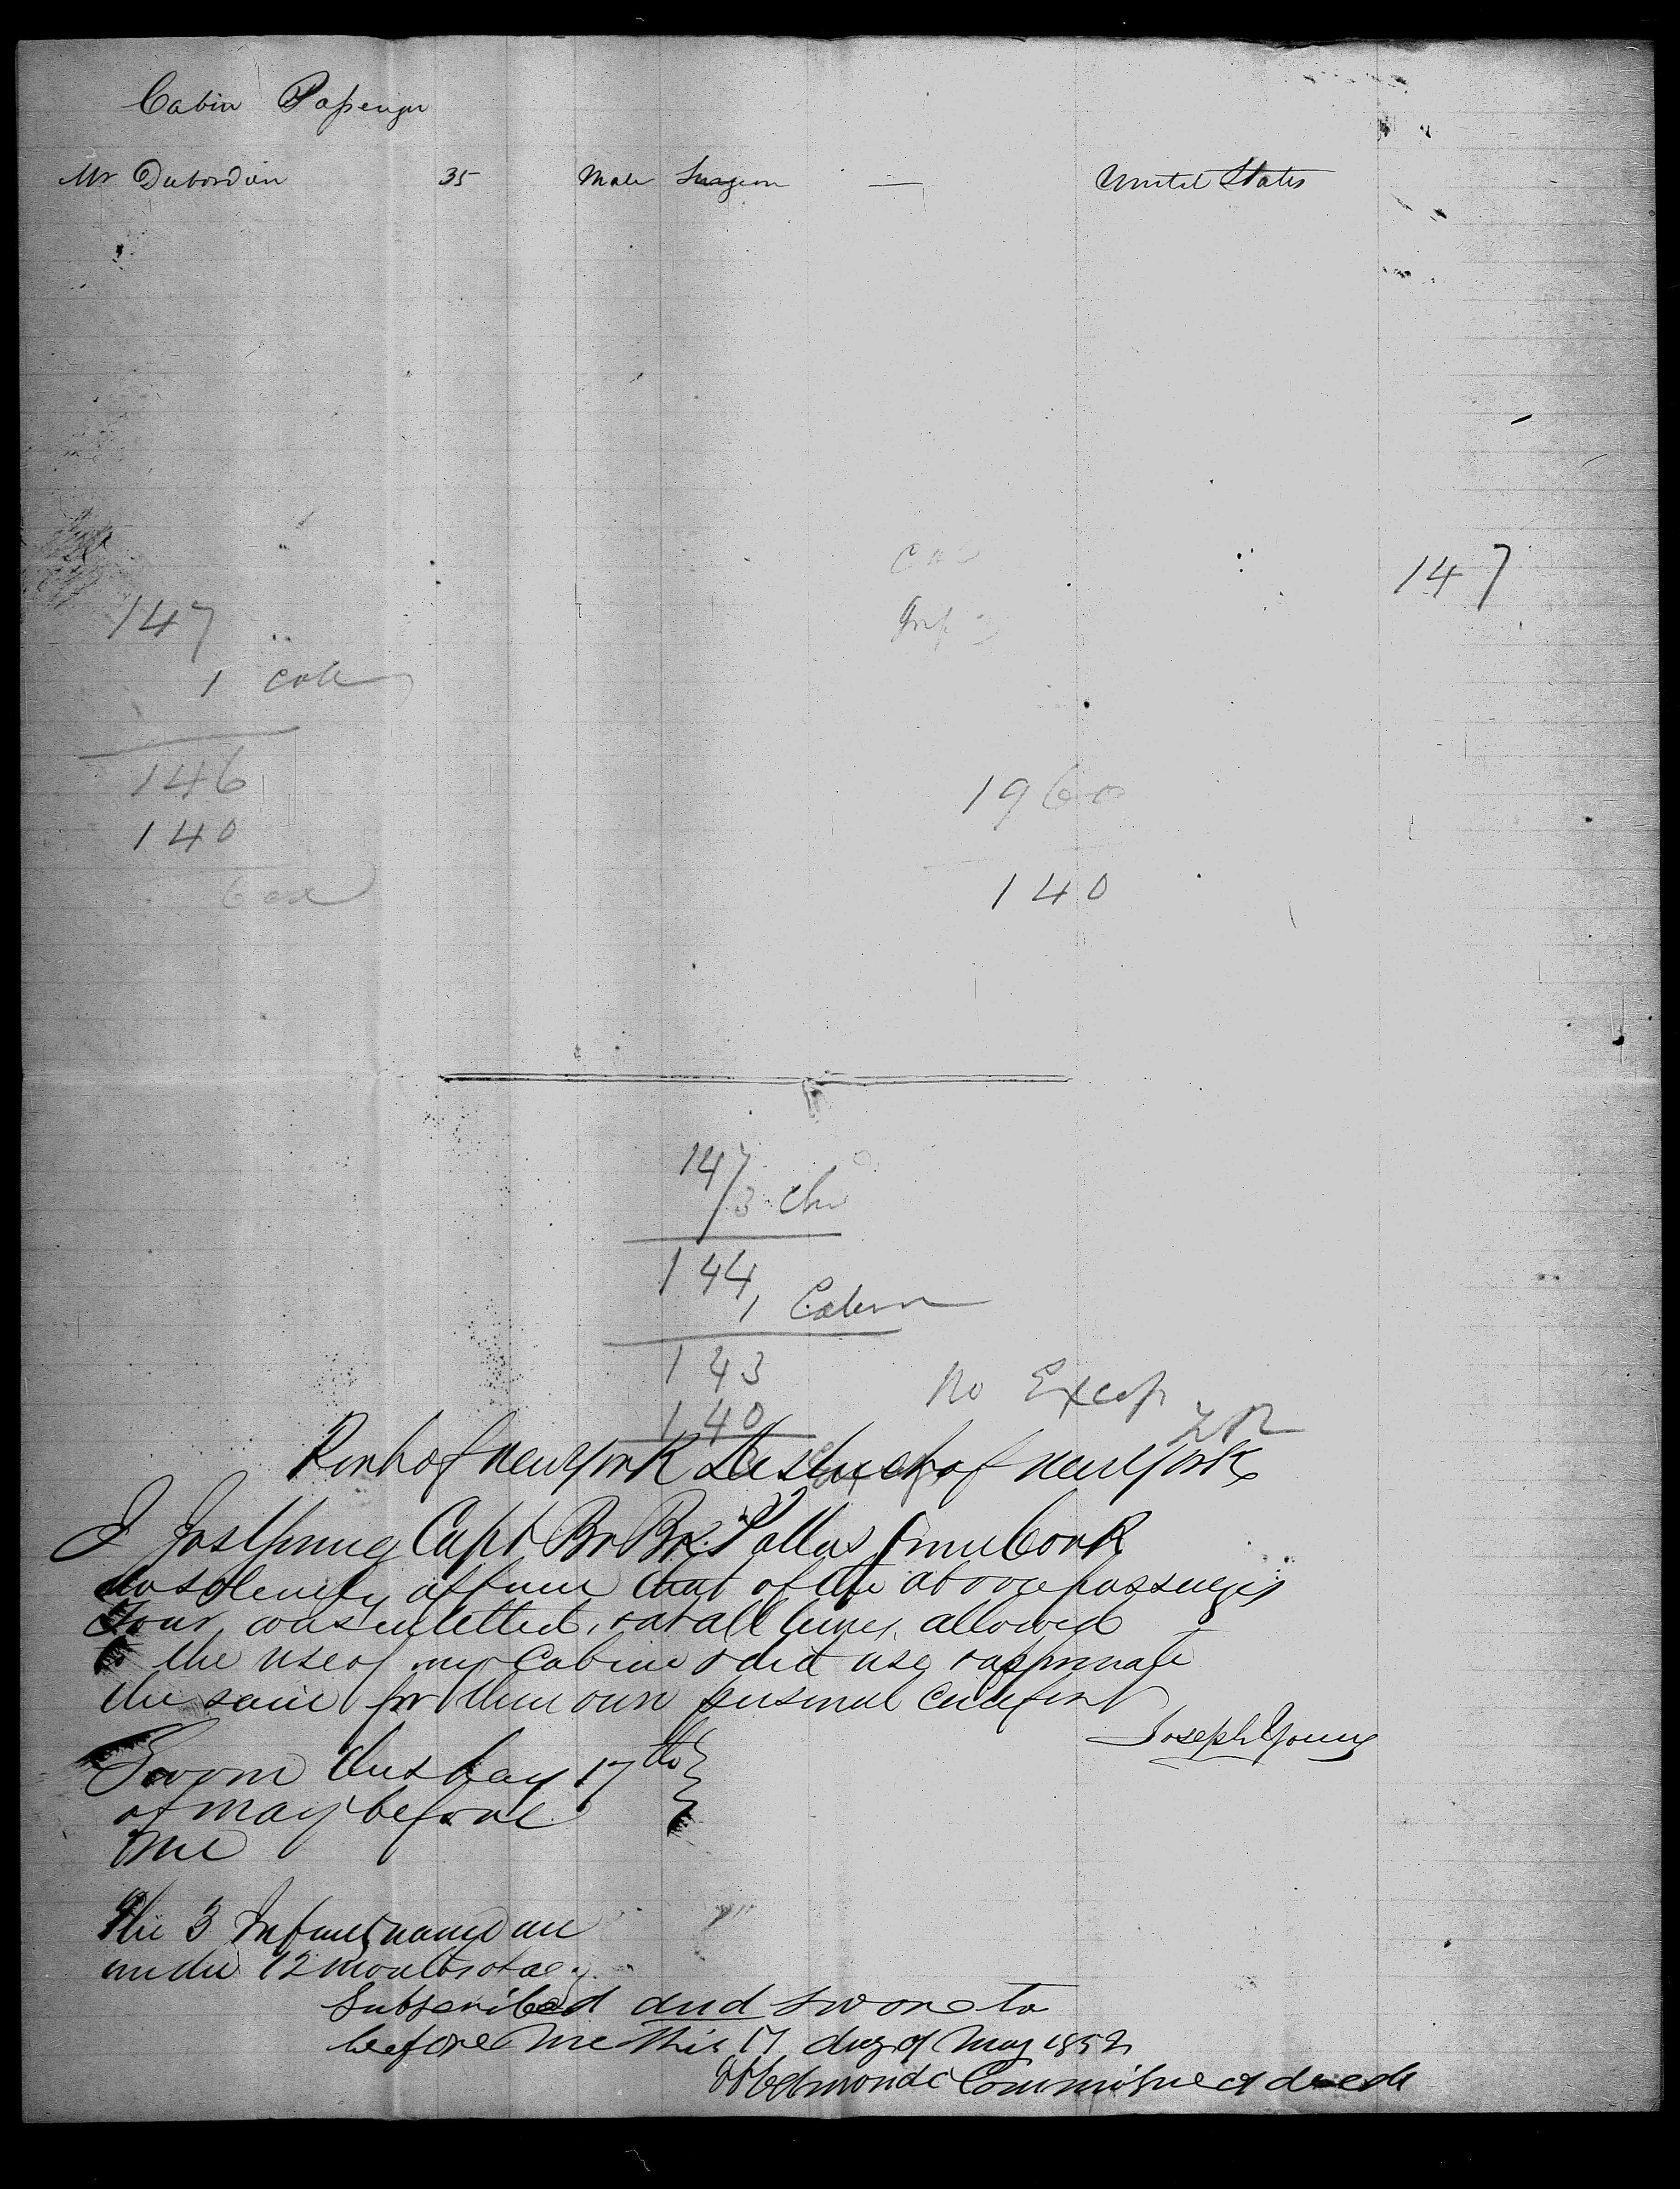 Cabin Passenger
Mr Dubordieu 35 Male Surgeon — United States
147
147
1 cab
146
140
6 ex
1960
140
147
3 chi
144
1 Cabin
143
140
No Excep
Port of New York District of New York
I Jos Young Capt Br Bk Pallas from Cork
do solemnly affirm that of the above passengers
Four was entitled, & at all times allowed
the use of my Cabin & did use & appropriate
the same for their own personal comfort
Joseph Young
Sworn this day 17th
of May before
me
The 3 Infants named are
under 12 months of age
Subscribed and swore to
before me this 17 day of May 1852
Edmonds Commissner of deeds